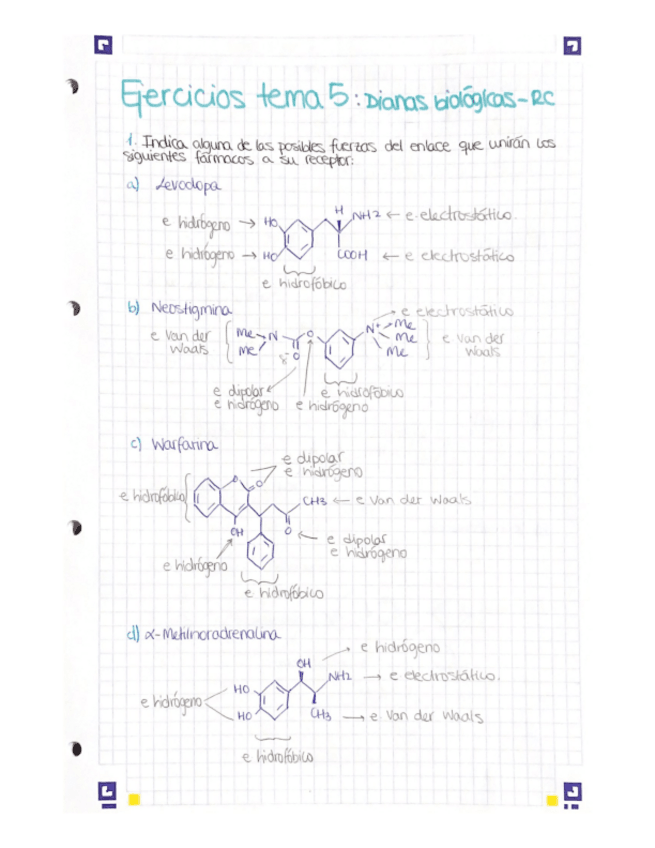 Ejercicios tema 5: Dianas biológicas - RC
1. Indica alguna de las posibles fuerzas del enlace que unirán los
siguientes fármacos a su receptor:
a) Levodopa
e hidrógeno → HO
H
NH2 ← e electrostático.
e hidrógeno → HO
COOH ← e electrostático
e hidrofóbico
b) Neostigmina
e electrostático
e van der
Waals
Me
N
Me
O
δ- O
N+
Me
Me
Me
e van der
Waals
e dipolar
e hidrógeno
e hidrógeno
e hidrofóbico
c) Warfarina
e dipolar
e hidrógeno
e hidrofóbico
O
O
CH3 ← e van der Waals
OH
O
e dipolar
e hidrógeno
e hidrógeno
e hidrofóbico
d) α-Metilnoradrenalina
e hidrógeno
OH
NH2 → e electrostático.
e hidrógeno
HO
HO
CH3 → e van der Waals
e hidrofóbico